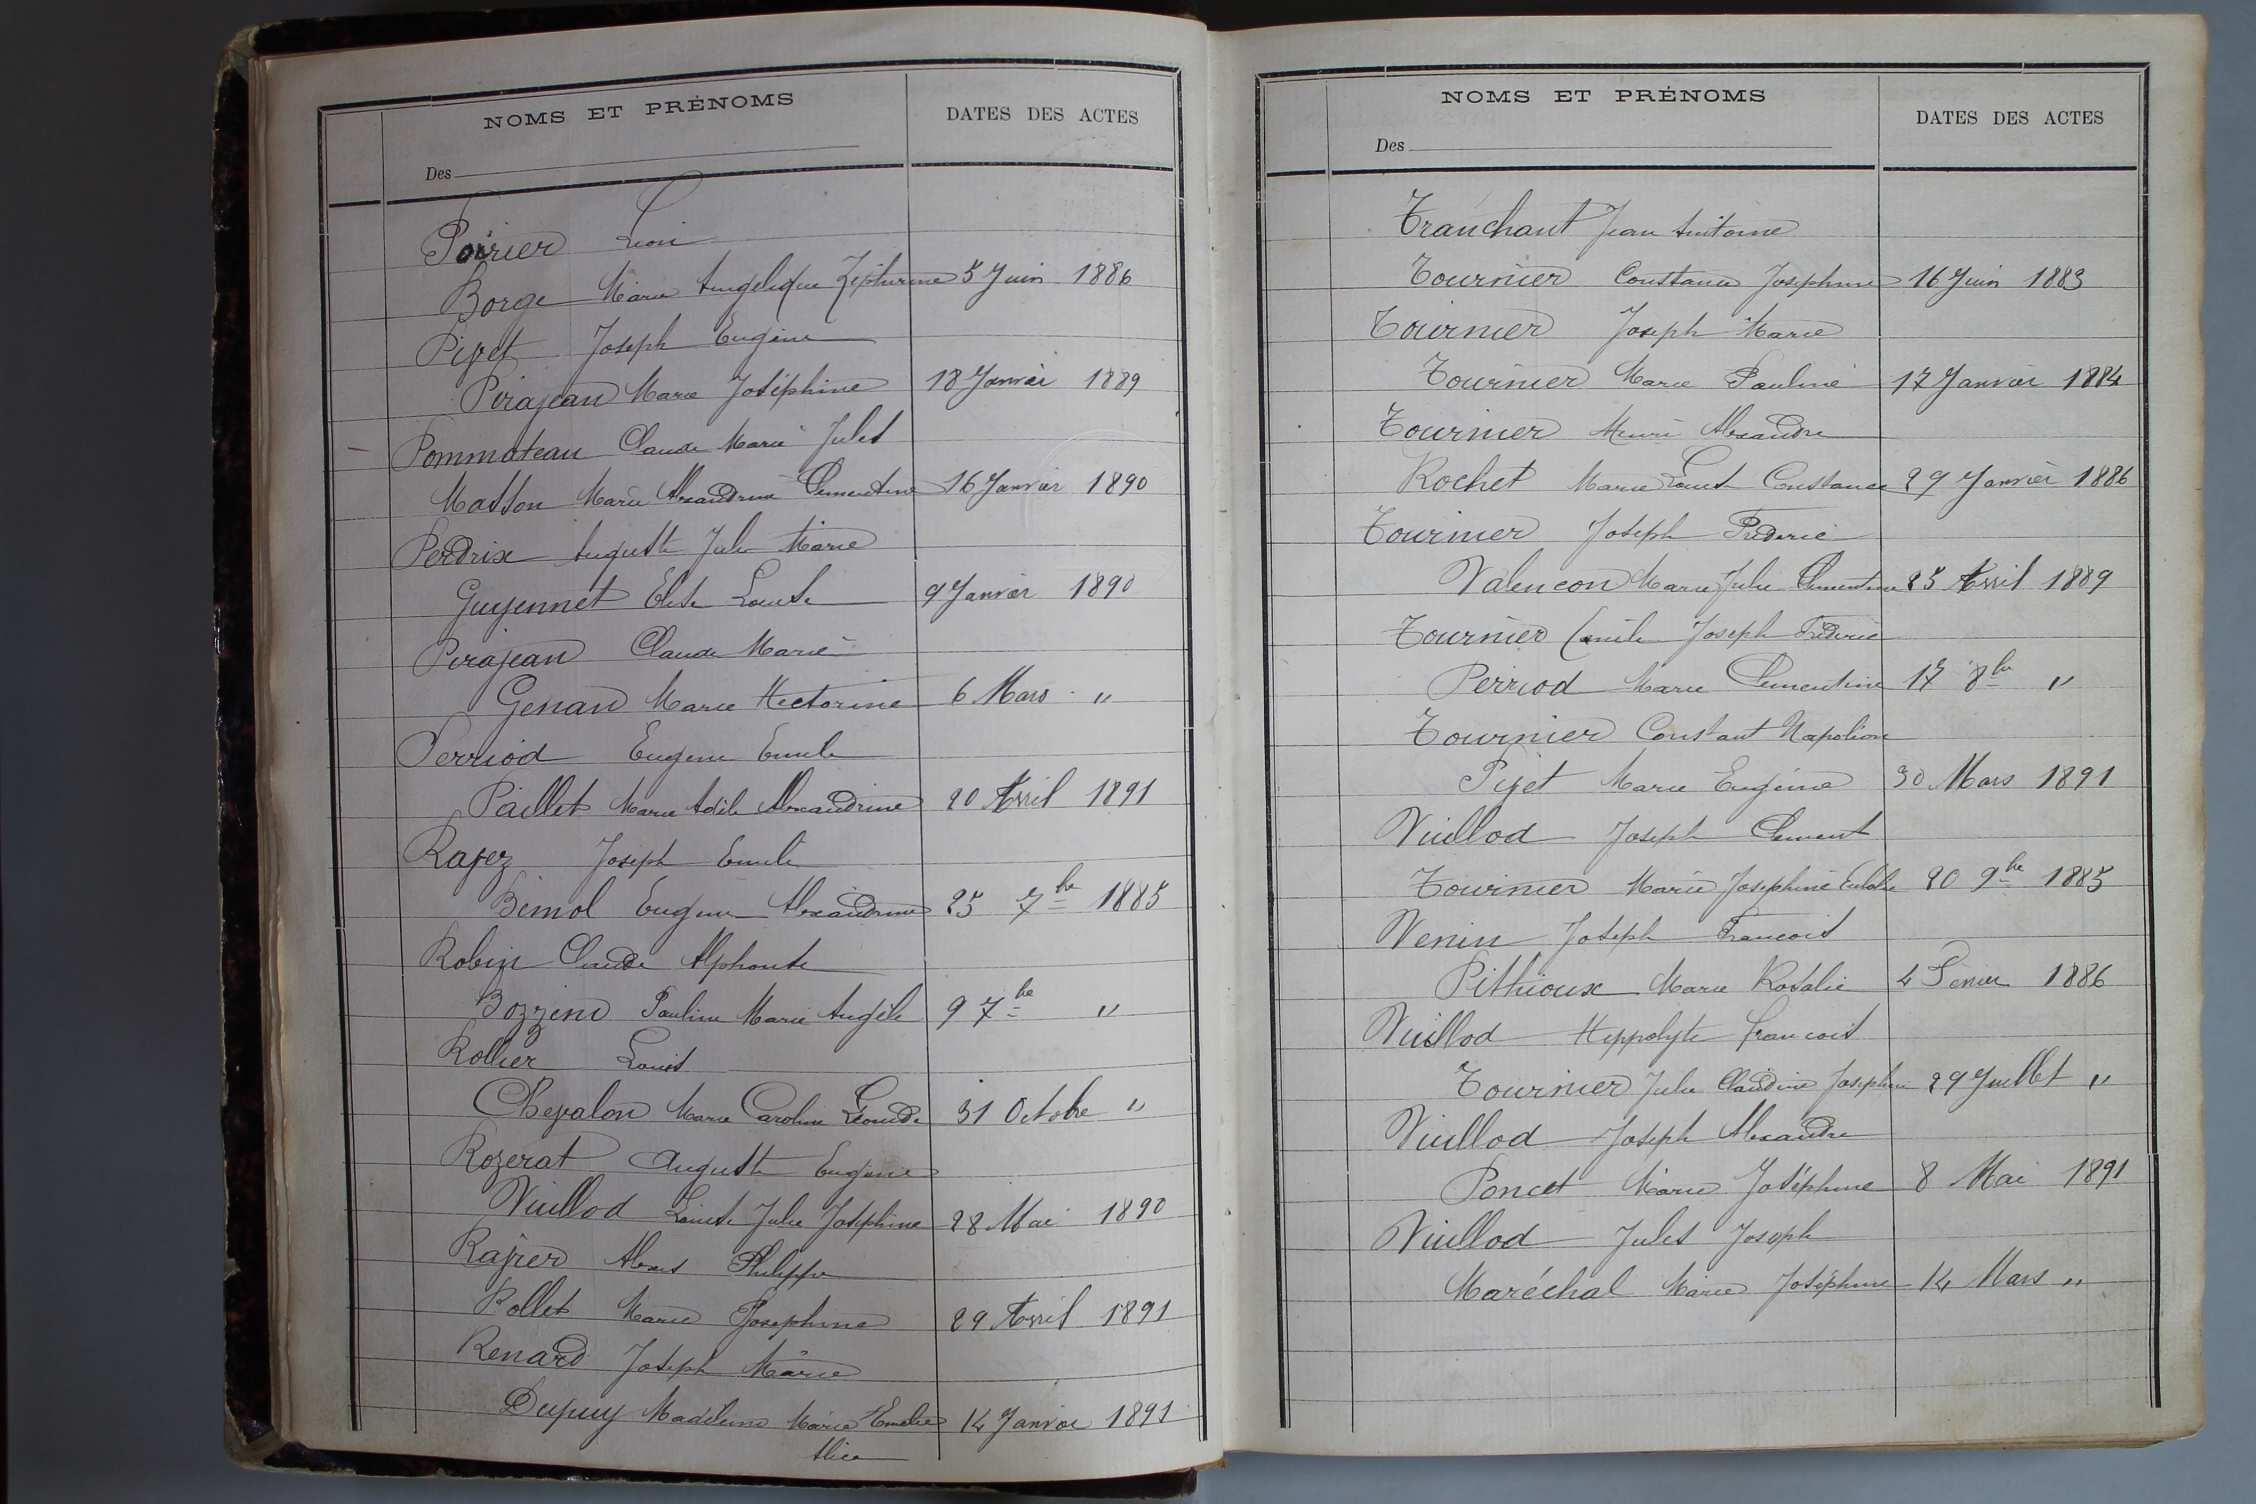 NOMS ET PRÉNOMS
DATES DES ACTES
Des
Poirier Léon
Borge Marie Angelique Zéphirine 5 Juin 1886
Piget Joseph Eugène
Pirajean Marie Joséphine 18 Janvier 1889
Pommateau Claude Marie Jules
Masson Marie Alexandrine Clementine 16 Janvier 1890
Perdrix Auguste Jules Marie
Guyennet Elise Louise 9 Janvier 1890
Pirajean Claude Marie
Genand Marie Hectorine 6 Mars "
Perriod Eugene Emile
Paillet Marie Adèle Alexandrine 20 Avril 1891
Rapez Joseph Emile
Bémol Eugenie Alexandrine 25 7bre 1885
Robin Claude Alphonse
Bozzino Pauline Marie Angèle 9 7bre "
Rollier Louis
Chevalon Marie Caroline Léonide 31 Octobre "
Rozerat Auguste Eugène
Vuillod Louise Julie Joséphine 28 Mai 1890
Rapier Alexis Philippe
Rollet Marie Josephine 29 Avril 1891
Renard Joseph Marie
Dupuy Madeleine Marie Emelie 14 Janvier 1891
Alice
NOMS ET PRÉNOMS
DATES DES ACTES
Des
Tranchant Jean Antoine
Tournier Constance Josephine 16 Juin 1883
Tournier Joseph Marie
Tournier Marie Pauline 17 Janvier 1884
Tournier Henri Alexandre
Rochet Marie Louise Constance 29 Janvier 1886
Tournier Joseph Fréderic
Valencon Marie Julie Clementine 25 Avril 1889
Tournier Camile Joseph Fréderic
Perriod Marie Clementine 17 8bre "
Tournier Constant Napoléon
Piget Marie Eugénie 30 Mars 1891
Vuillod Joseph Clement
Tournier Marie Josephine 20 9bre 1885
Venin Joseph Francois
Pithioux Marie Rosalie 4 Février 1886
Vuillod Hippolyte francois
Tournier Julie Claudine Josephine 29 Juillet "
Vuillod Joseph Alexandre
Poncet Marie Joséphine 8 Mai 1891
Vuillod Jules Joseph
Maréchal Marie Joséphine 14 Mars "